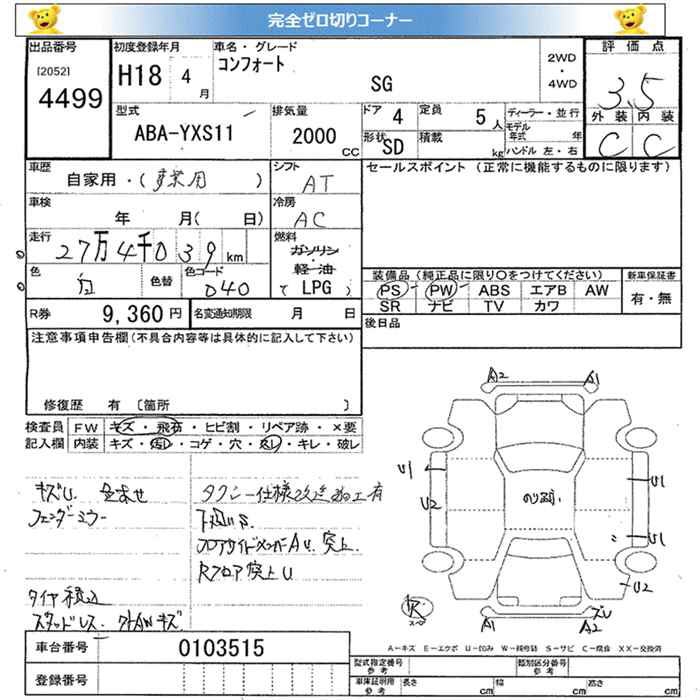 完全ゼロ切りコーナー
出品番号
[2052]
4499
初度登録年月
H18 4月
車名・グレード
コンフォート
SG
2WD
・
4WD
評価点
3.5
外装 内装
C C
型式
ABA-YXS11
排気量
2000 CC
ドア 4
定員 5人
形状 SD
積載 kg
ディーラー・並行
モデル年式 年
ハンドル 左・右
車歴
自家用・(事業用)
シフト
AT
車検
年 月( 日)
冷房
AC
走行
27万4千039km
燃料
ガソリン
軽・油
(LPG)
色
白
色替
色コード
040
セールスポイント(正常に機能するものに限ります)
装備品(純正品に限り○をつけてください)
PS・PW・ABS エアB AW
SR ナビ TV カワ
新車保証書
有・無
後日品
R券 9,360円
名変通知期限 月 日
注意事項申告欄(不具合内容等は具体的に記入して下さい)
修復歴 有 〔箇所 〕
検査員記入欄
FW キズ・飛石・ヒビ割・リペア跡・×要
内装 キズ・汚レ・コゲ・穴・スレ・キレ・破レ
キズU
フェンダーミラー
タイヤ積込
スタッドレス
タクシー仕様改造加工有
下廻りS
フロアサイドメンバーAU 突上
Rフロア突上U
A2 A1
U1
U2
U1
U1
U2
R
A1 A2
A-キズ E-エクボ U-凹み W-補修跡 S-サビ C-腐食 XX-交換済
車台番号 0103515
登録番号
型式指定番号 参考
類別区分番号 参考
車庫証明用 参考
長さ cm
幅 cm
高さ cm